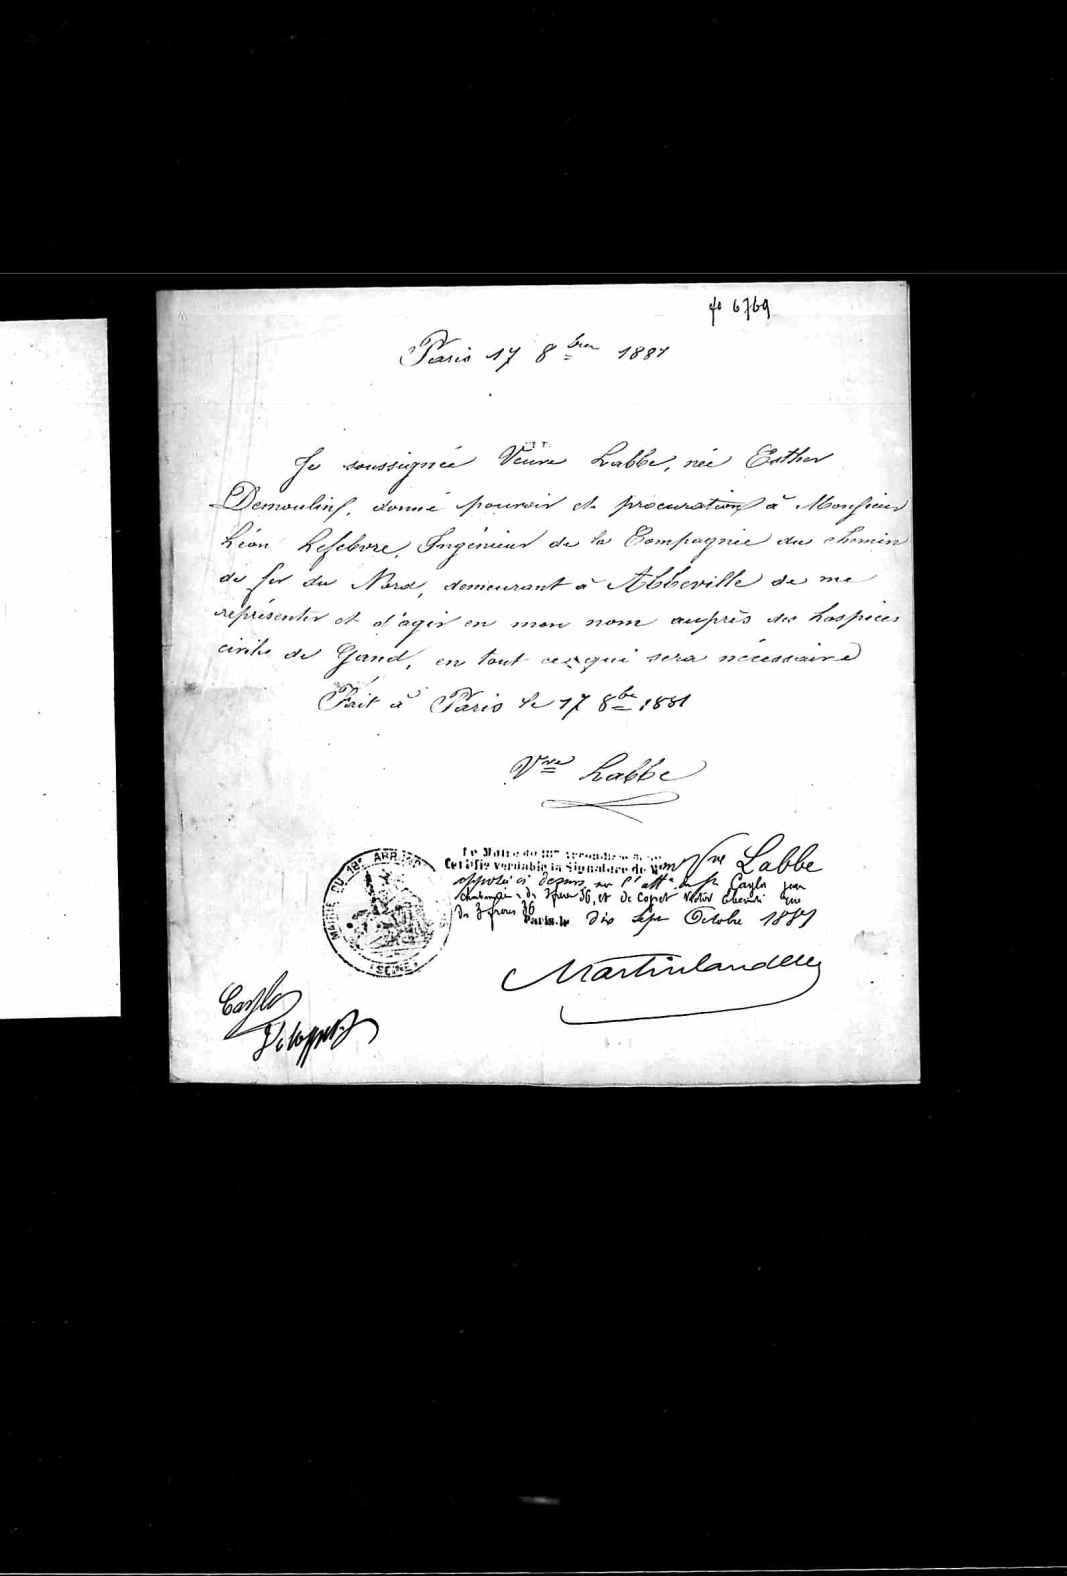 6769
Paris 17 8bre 1881
Je soussignée Veuve Labbe, née Esther
Demoulins, donne pouvoir et procuration à Monsieur
Léon Lefebvre, Ingénieur de la Compagnie du chemin
de fer du Nord, demeurant à Abbeville de me
représenter et d'agir en mon nom auprès des hospices
civils de Gand, en tout ce qui sera nécessaire
Fait à Paris le 17 8bre 1881
Vve Labbe
Le Maire du 18e Arrondissement
Certifie véritable la Signature de Mme Vve Labbe
apposée ci dessus sur l'atton de Cayla
36, et de Copet Victor
36
Paris, le dix sept Octobre 1881
MAIRIE DU 18e ARRONDt
(SEINE)
Martinlandelle
Cayla